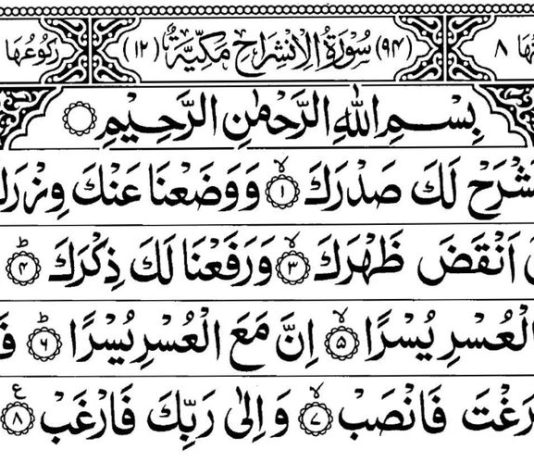 ـهَا ٨ (٩٤) سُوْرَةُ الْاِنْشِرَاحِ مَكِّيَّةٌ (١٢) رُكُوْعُهَا
بِسْمِ اللهِ الرَّحْمٰنِ الرَّحِيْمِ
ـشْرَحْ لَكَ صَدْرَكَ ۙ١ وَوَضَعْنَا عَنْكَ وِزْرَكَ
اَنْقَضَ ظَهْرَكَ ۙ٣ وَرَفَعْنَا لَكَ ذِكْرَكَ ؕ٤
الْعُسْرِ يُسْرًا ۙ٥ اِنَّ مَعَ الْعُسْرِ يُسْرًا ؕ٦ فَـ
ـرَغْتَ فَانْصَبْ ۙ٧ وَاِلٰى رَبِّكَ فَارْغَبْ ٨ ع